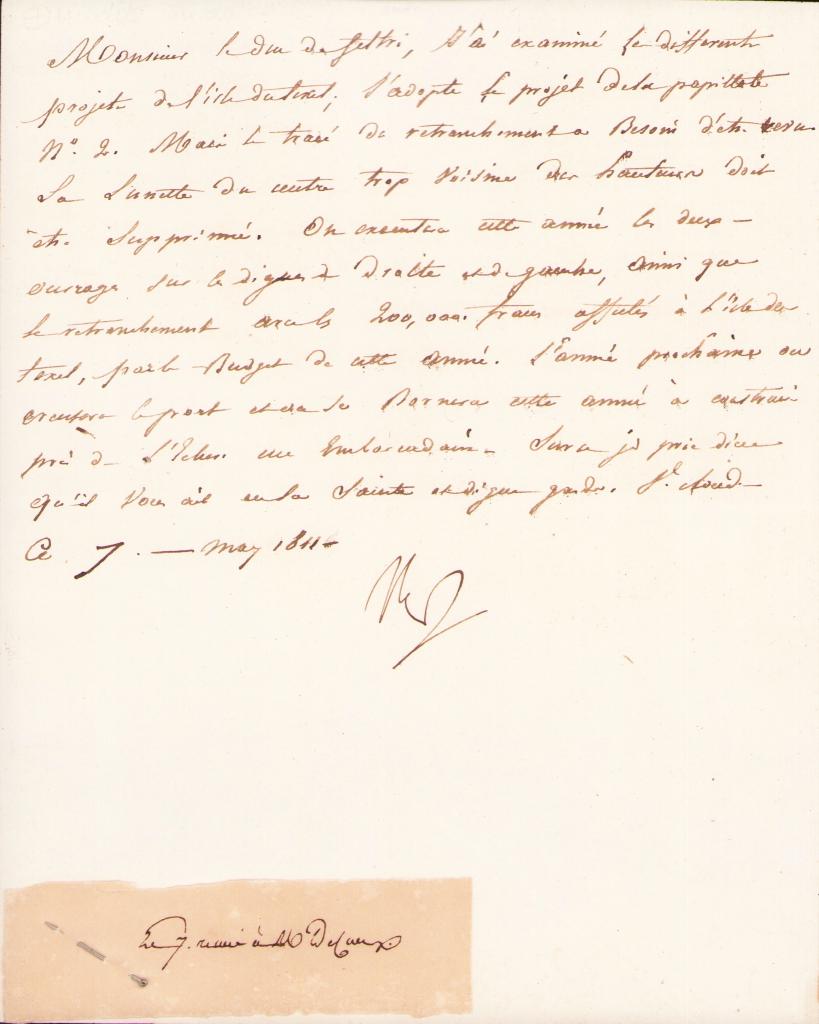 Monsieur le duc de feltri, J'ai examiné les differents
projets de l'isle du texel; J'adopte le projet de la papillote
N.° 2. Mais le tracé du retranchement a Besoin d'etre revu
La Lunette du centre trop Voisine des hauteurs doit
etre Supprimée. On executera cette année les deux
ouvrages sur les digues de Droite et de gauche, ainsi que
le retranchement avec les 200,000. francs affectés à l'isle du
texel, par le Budget de cette année. L'année prochaine on
creusera le port et on se Bornera cette année à construire
près de l'Ecluse un Embarcadaire. Sur ce je prie dieu
qu'il Vous ait en sa Sainte et digne garde. S.t Cloud
Ce 7. — May 1811
Np
Le 7. remis à M Decaux.